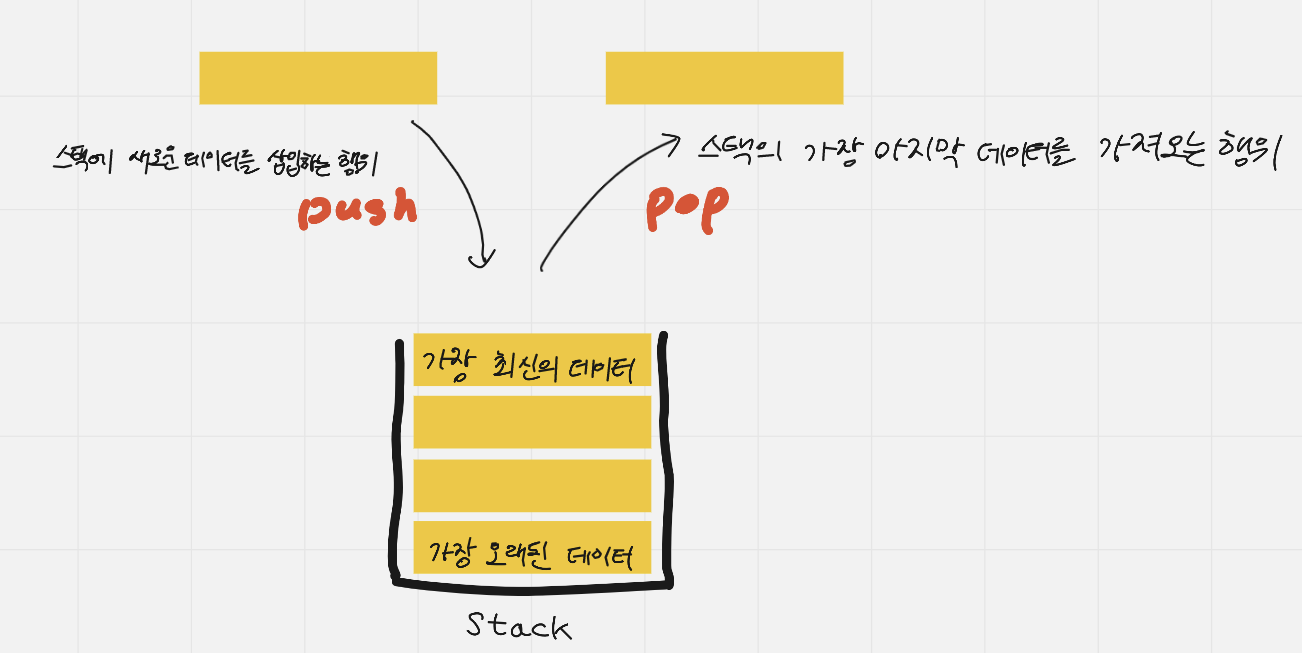 스택에 새로운 데이터를 삽입하는 행위
push
스택의 가장 마지막 데이터를 가져오는 행위
pop
가장 최신의 데이터
가장 오래된 데이터
Stack